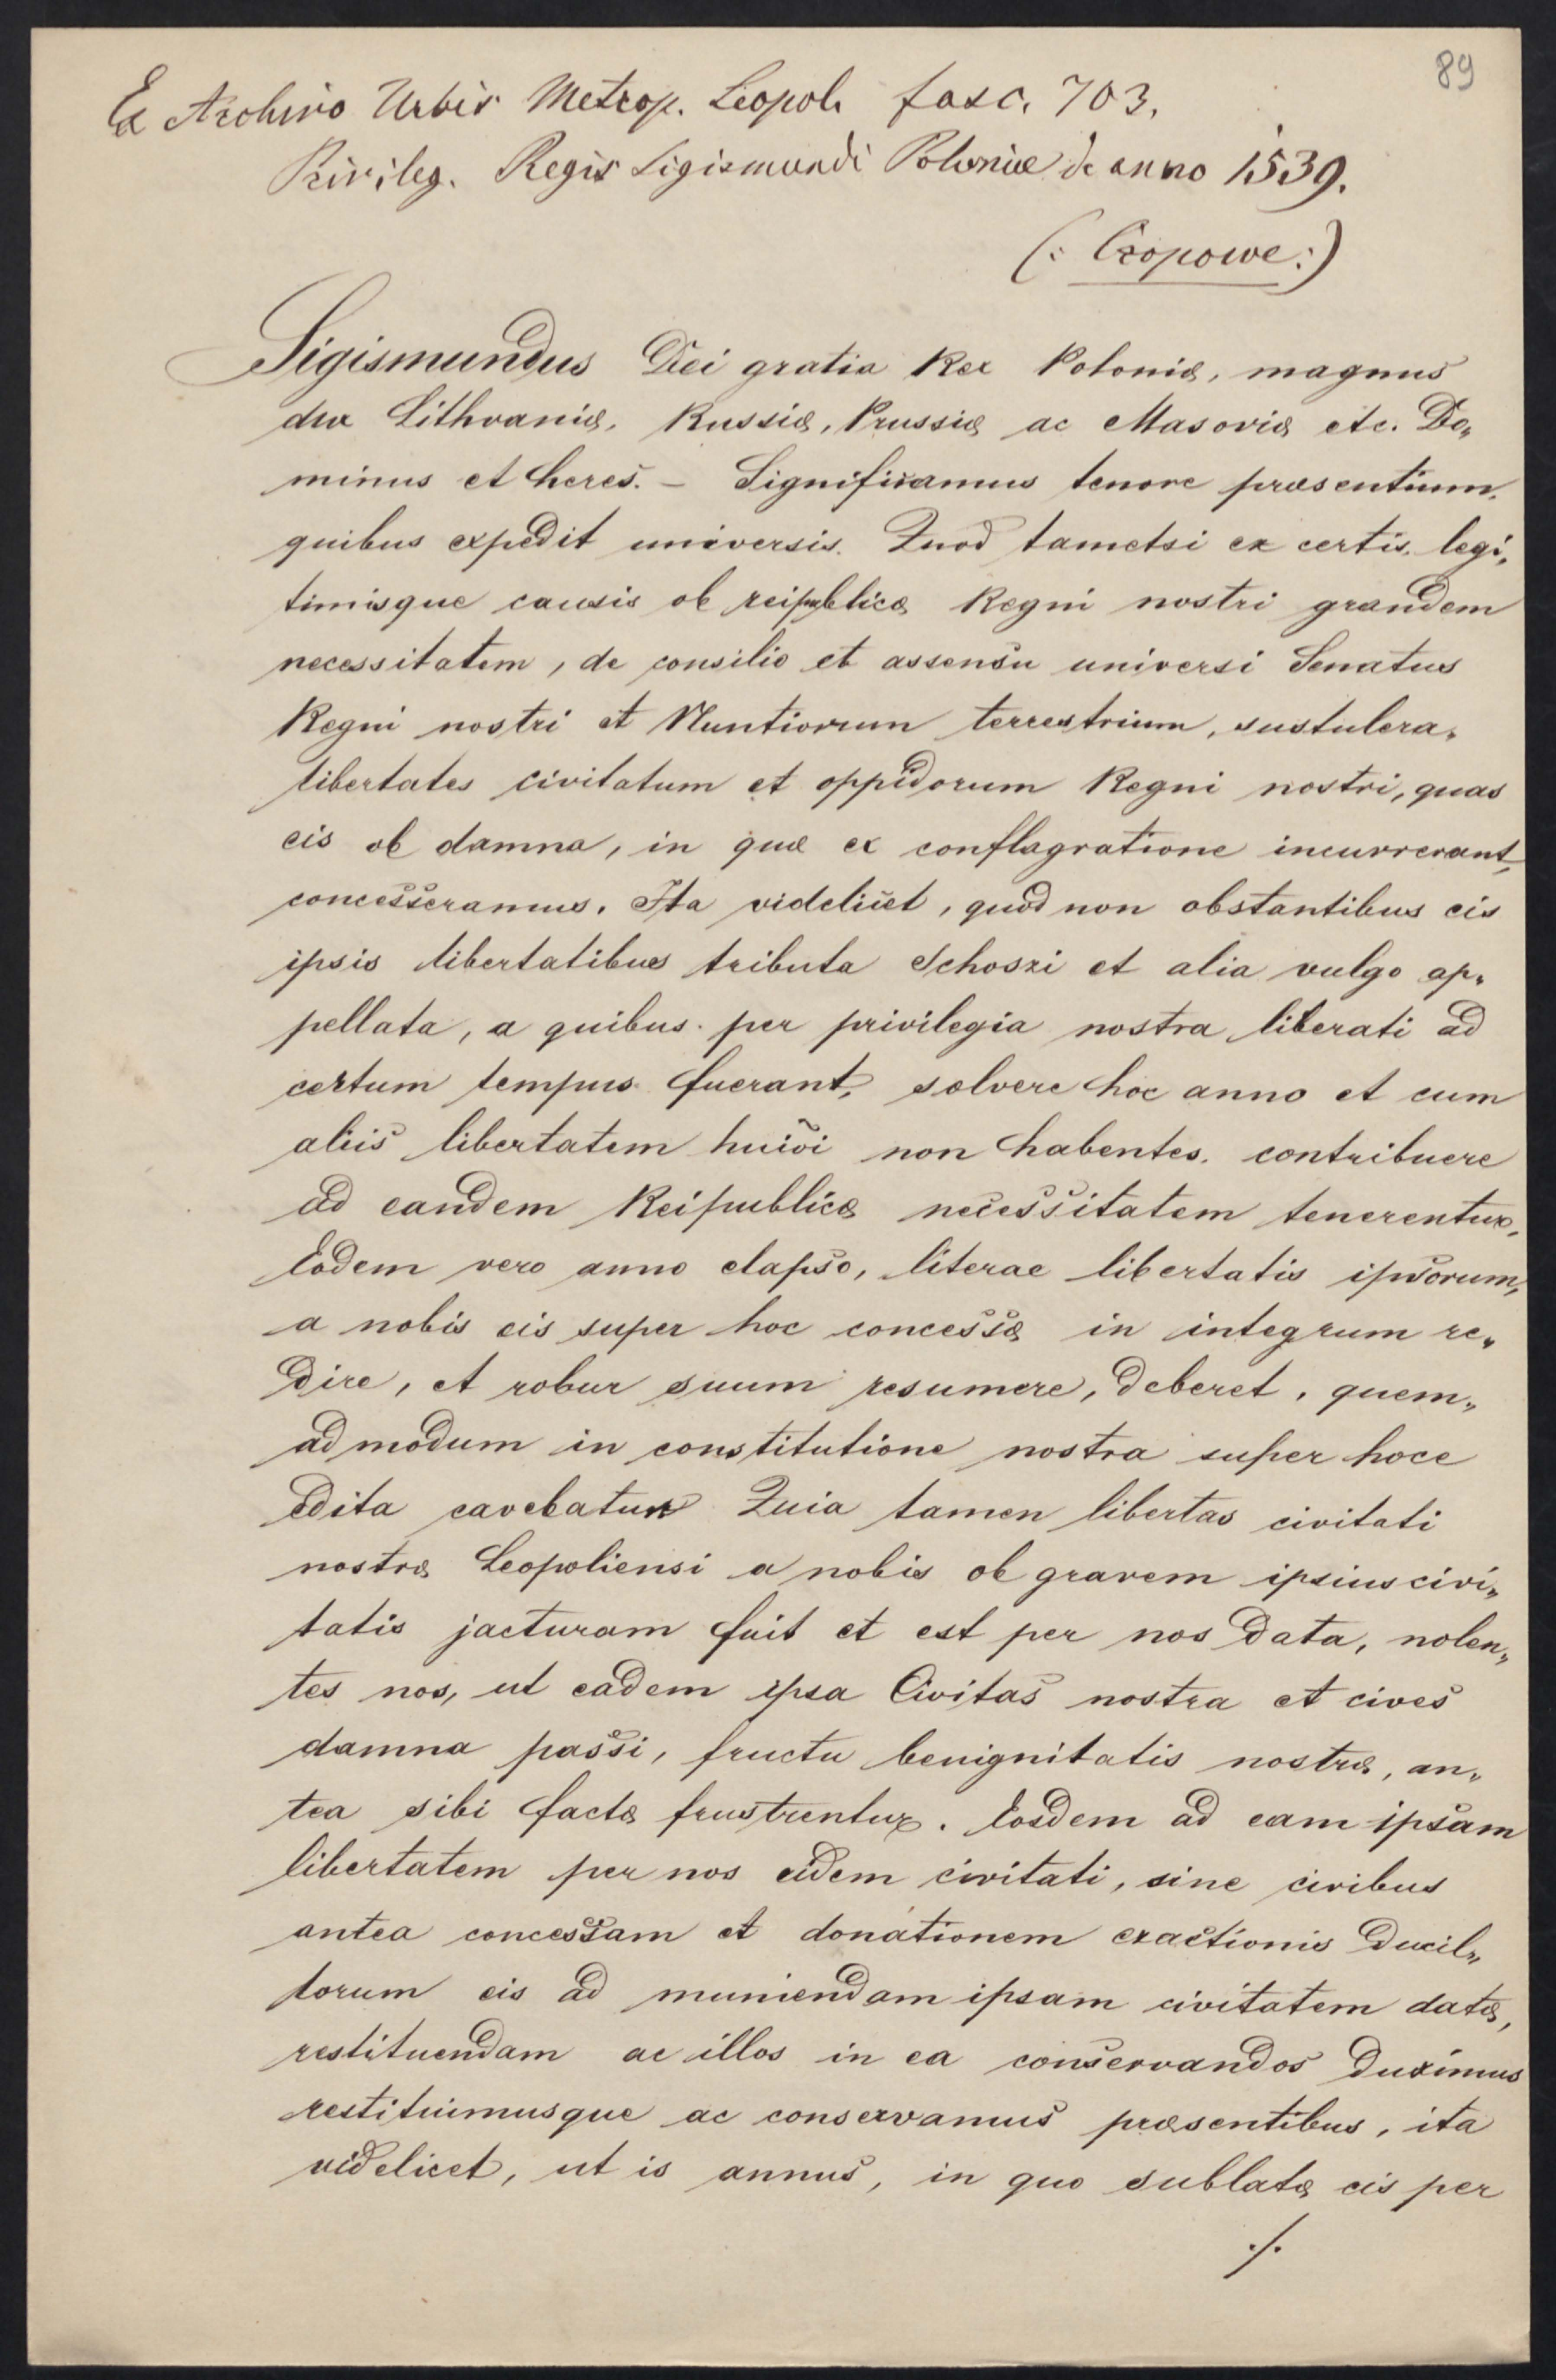 89
Ex Archivo Urbis Metrop. Leopol. fasc. 703.
Privileg. Regis Sigismundi Poloniæ de anno 1539.
(: Czopowe :)
Sigismundus Dei gratia Rex Poloniæ, magnus
dux Lithvaniæ, Russiæ, Prussiæ ac Masoviæ etc. Do„
minus et heres. – Significamus tenore præsentium
quibus expedit universis. Quod tametsi ex certis, legi„
timisque causis ob reipublicæ Regni nostri grandem
necessitatem, de consilio et assensu universi Senatus
Regni nostri et Nuntiorum terrestrium, sustulera„
libertates civitatum et oppidorum Regni nostri, quas
eis ob damna, in quæ ex conflagratione incurrerant,
concesseramus. Ita videlicet, quod non obstantibus eis
ipsis libertatibus tributa Schoszi et alia vulgo ap„
pellata, a quibus per privilegia nostra liberati ad
certum tempus fuerant, solvere hoc anno et cum
aliis libertatem huiõi non habentes, contribuere
ad eandem Reipublicæ necessitatem tenerentur,
Eodem vero anno elapso, literae libertatis ipsorum,
a nobis eis super hoc concessæ in integrum re„
dire, et robur suum resumere, deberet, quem„
admodum in constitutione nostra super hoce
edita cavebatur Quia tamen libertas civitati
nostræ Leopoliensi a nobis ob gravem ipsius civi„
tatis jacturam fuit et est per nos data, nolen„
tes nos, ut eadem ipsa Civitas nostra et cives
damna passi, fructu benignitatis nostræ, an„
tea sibi factæ frustrentur. Eosdem ad eam ipsam
libertatem per nos eidem civitati, sine civibus
antea concessam et donationem exactionis Ducil„
lorum eis ad muniendam ipsam civitatem datæ,
restituendam ac illos in ea conservandos duximus
restituimusque ac conservamus præsentibus, ita
videlicet, ut is annus, in quo sublatæ eis per
./.